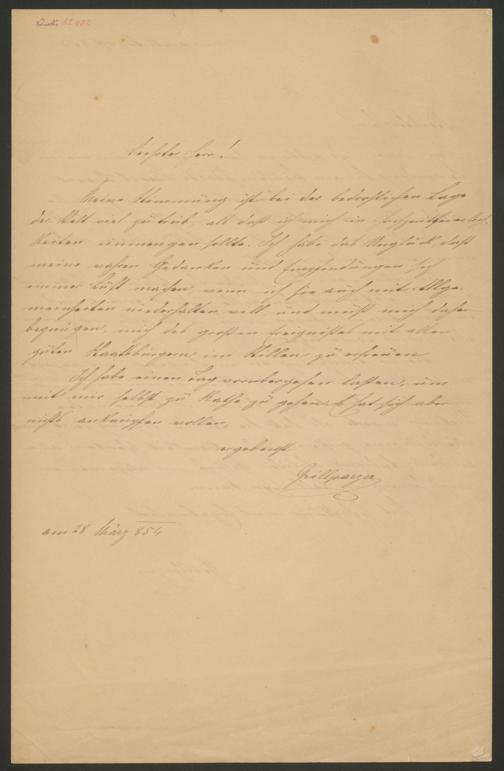 Verehrter Herr!
Meine Stimmung ist bei der bedrohlichen Lage
der Welt viel zu trüb, als daß ich mich in
keiten einmengen sollte. Ich habe das Unglück daß
meine wahren Gedanken und Empfindungen sich
immer Luft machen, wenn ich sie auch mit Allge-
meinheiten niederhalten will und muß mich daher
begnügen, mich des großen Ereignißes mit allen
guten Staatsbürgern im Stillen zu erfreuen.
Ich habe einen Tag vorübergehen lassen, um
mit mir selbst zu Rathe zu gehen, es hat sich aber
nichts anknüpfen wollen.
ergebenst
Grillparzer
am 28 März 854